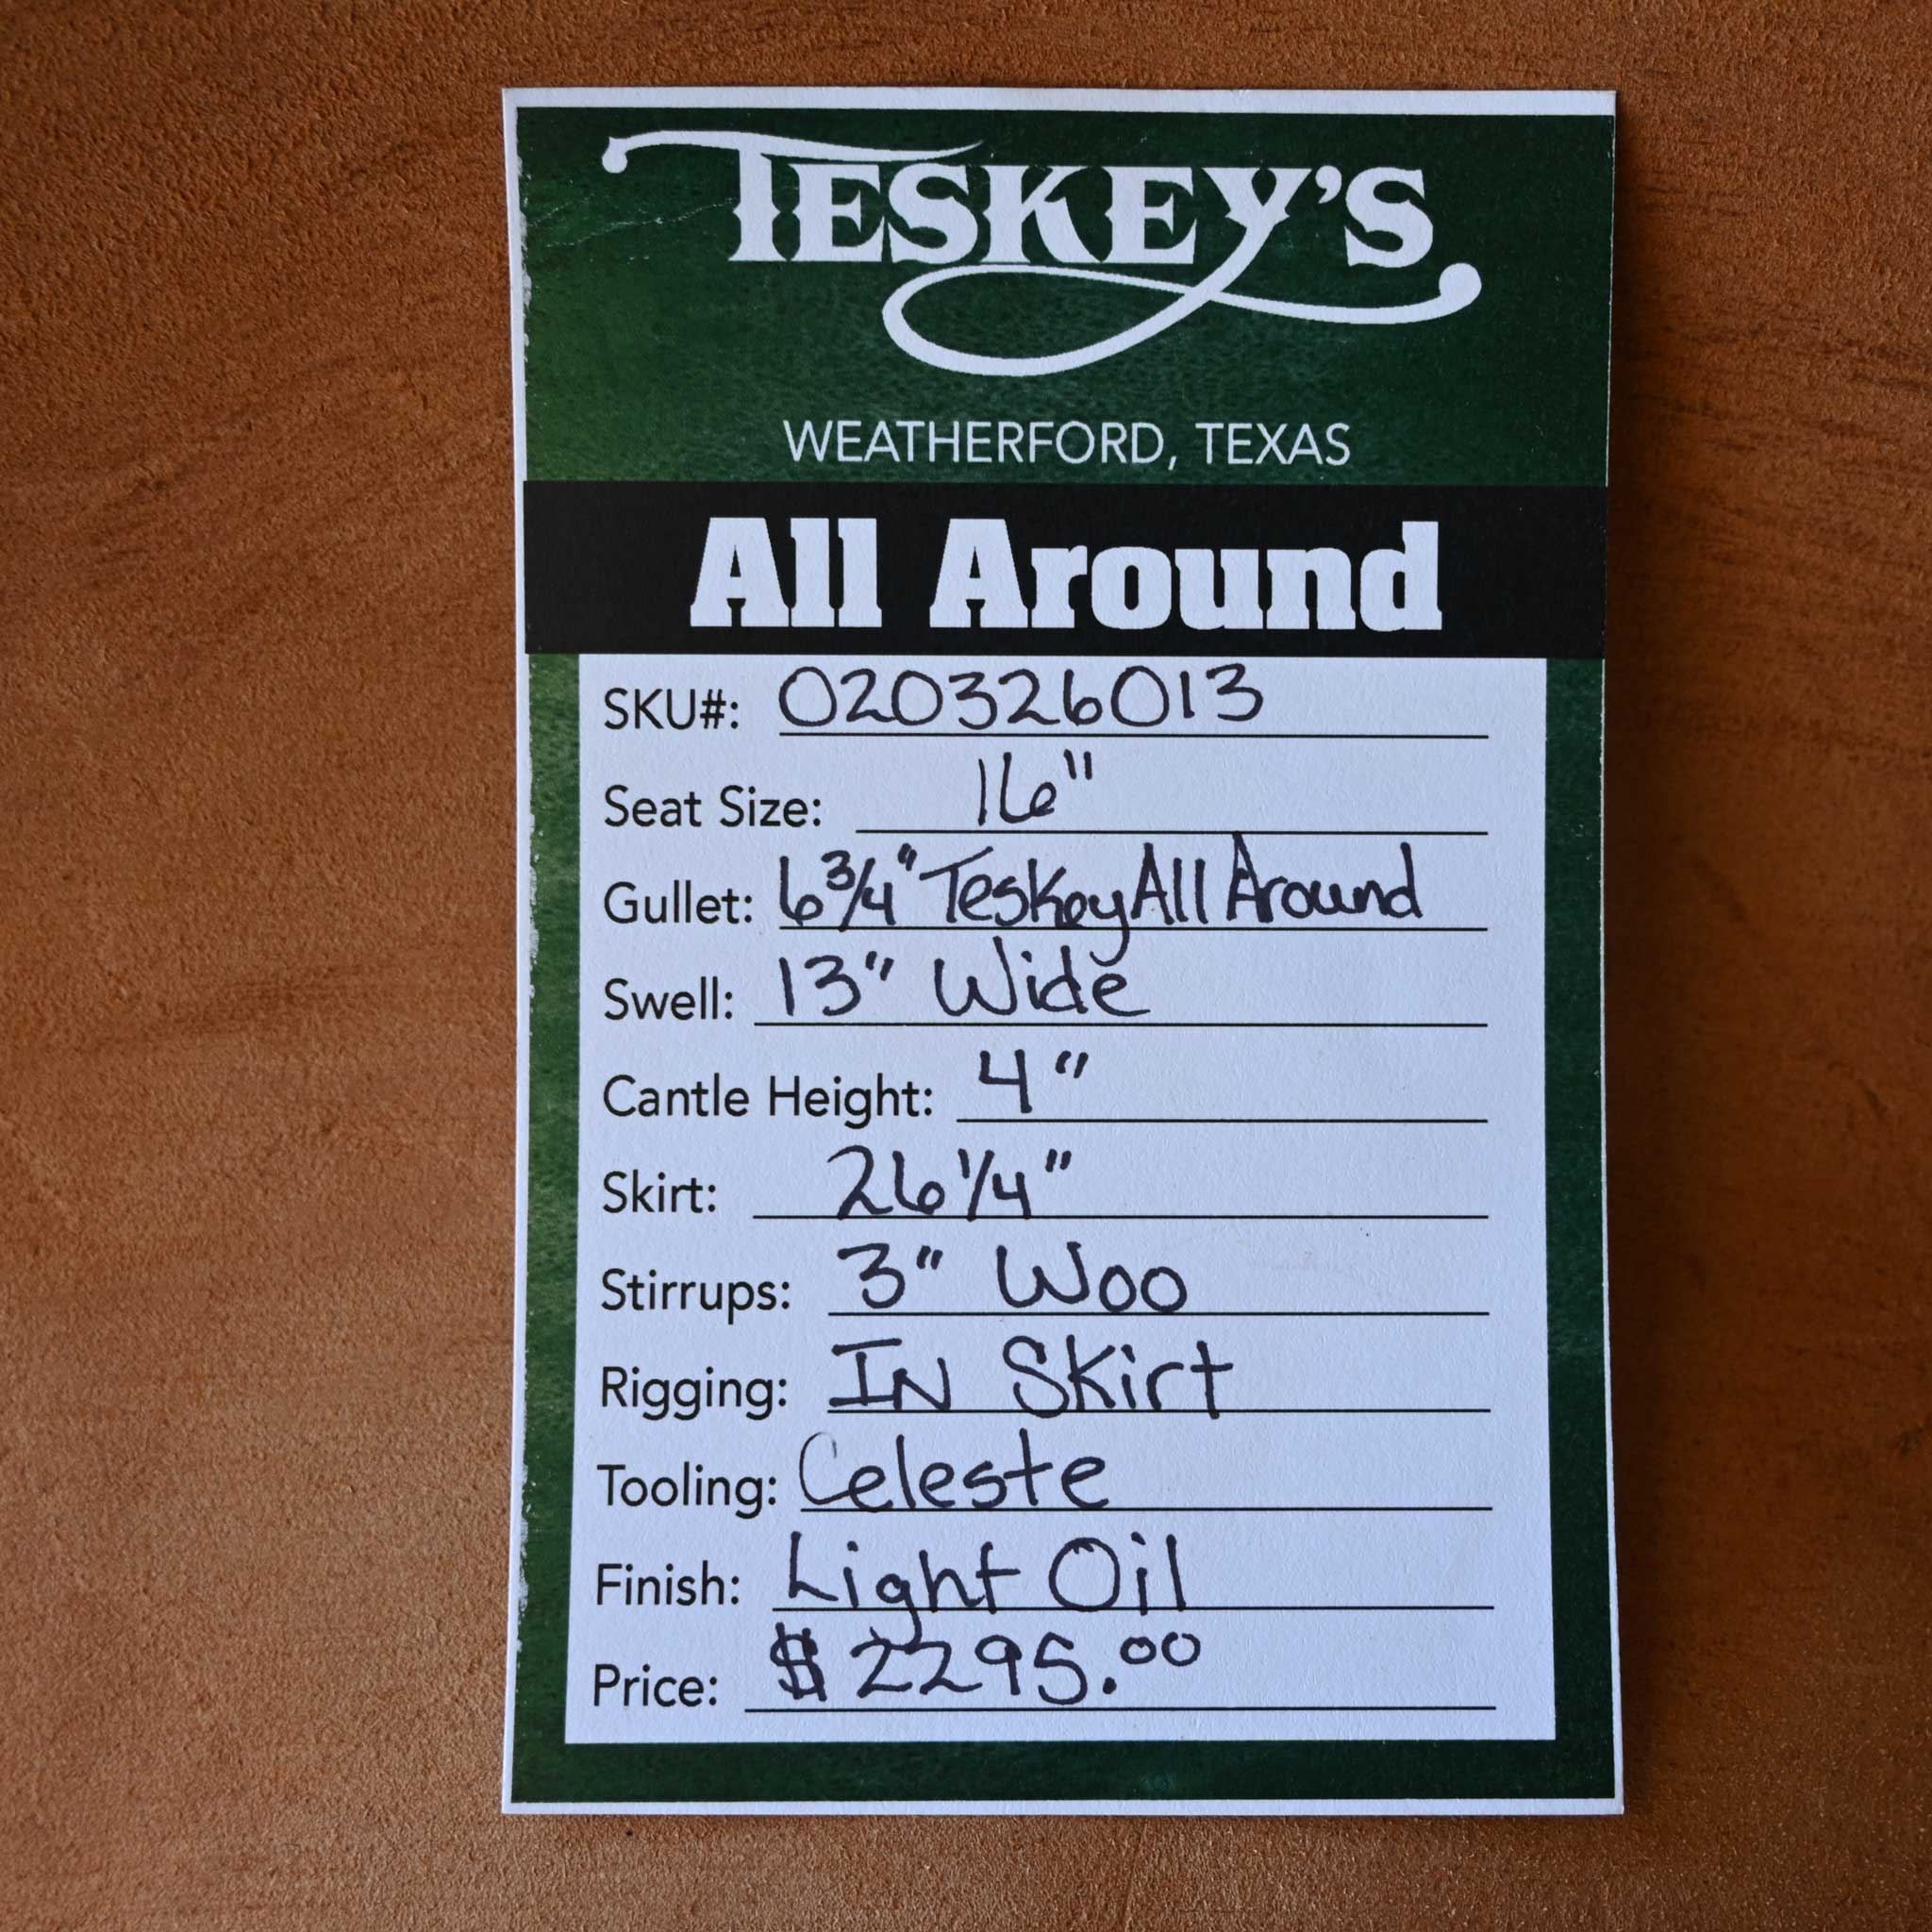 TESKEY'S
WEATHERFORD, TEXAS
All Around
SKU#: 020326013
Seat Size: 16"
Gullet: 6 3/4" Teskey All Around
Swell: 13" Wide
Cantle Height: 4"
Skirt: 26 1/4"
Stirrups: 3" Woo
Rigging: IN Skirt
Tooling: Celeste
Finish: Light Oil
Price: $2295.00